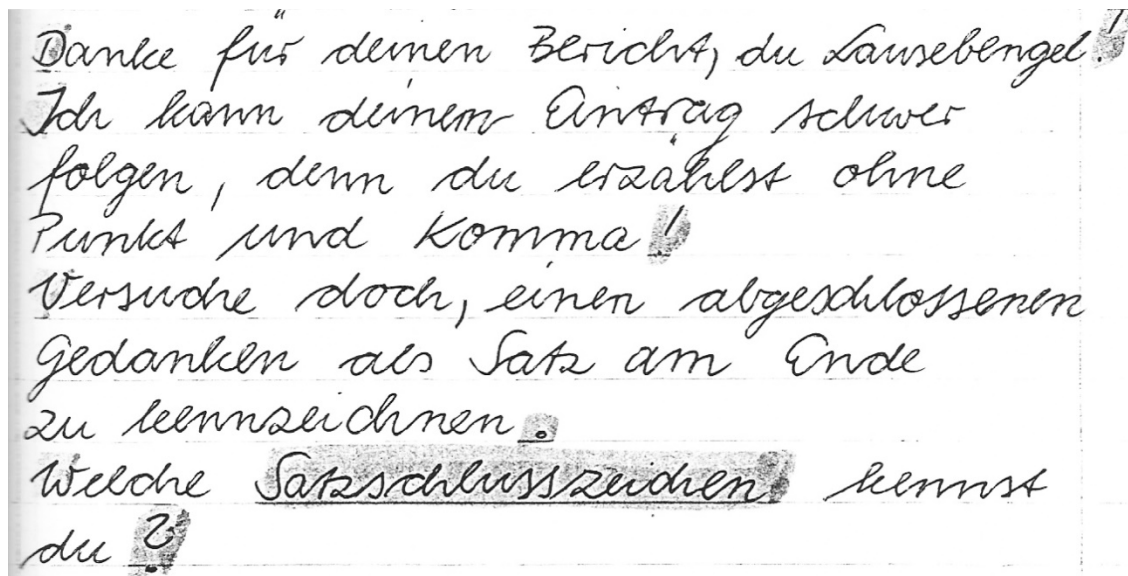 Danke für deinen Bericht, du Lausebengel!
Ich kann deinem Eintrag schwer
folgen, denn du erzählst ohne
Punkt und Komma!
Versuche doch, einen abgeschlossenen
Gedanken als Satz am Ende
zu kennzeichnen.
Welche Satzschlusszeichen kennst
du?